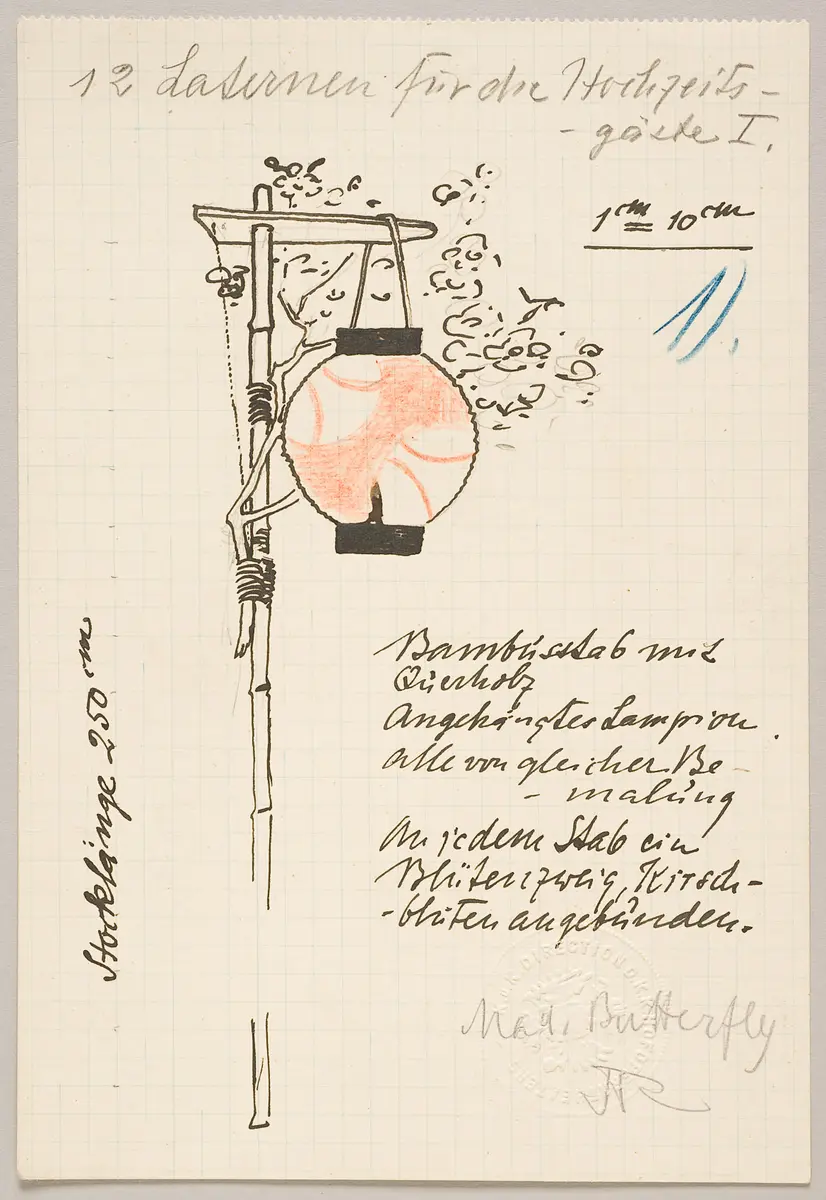 12 Laternen für die Hochzeits-
- gäste I.
1 cm = 10 cm
11.
Bambusstab mit
Querholz
Angehängtes Lampion.
alle von gleicher Be-
- malung
An jedem Stab ein
Blütenzweig, Kirsch-
- blüten angebunden.
Stocklänge 250 cm
DIRECTION D. K. K. HOFOP
Mad. Butterfly